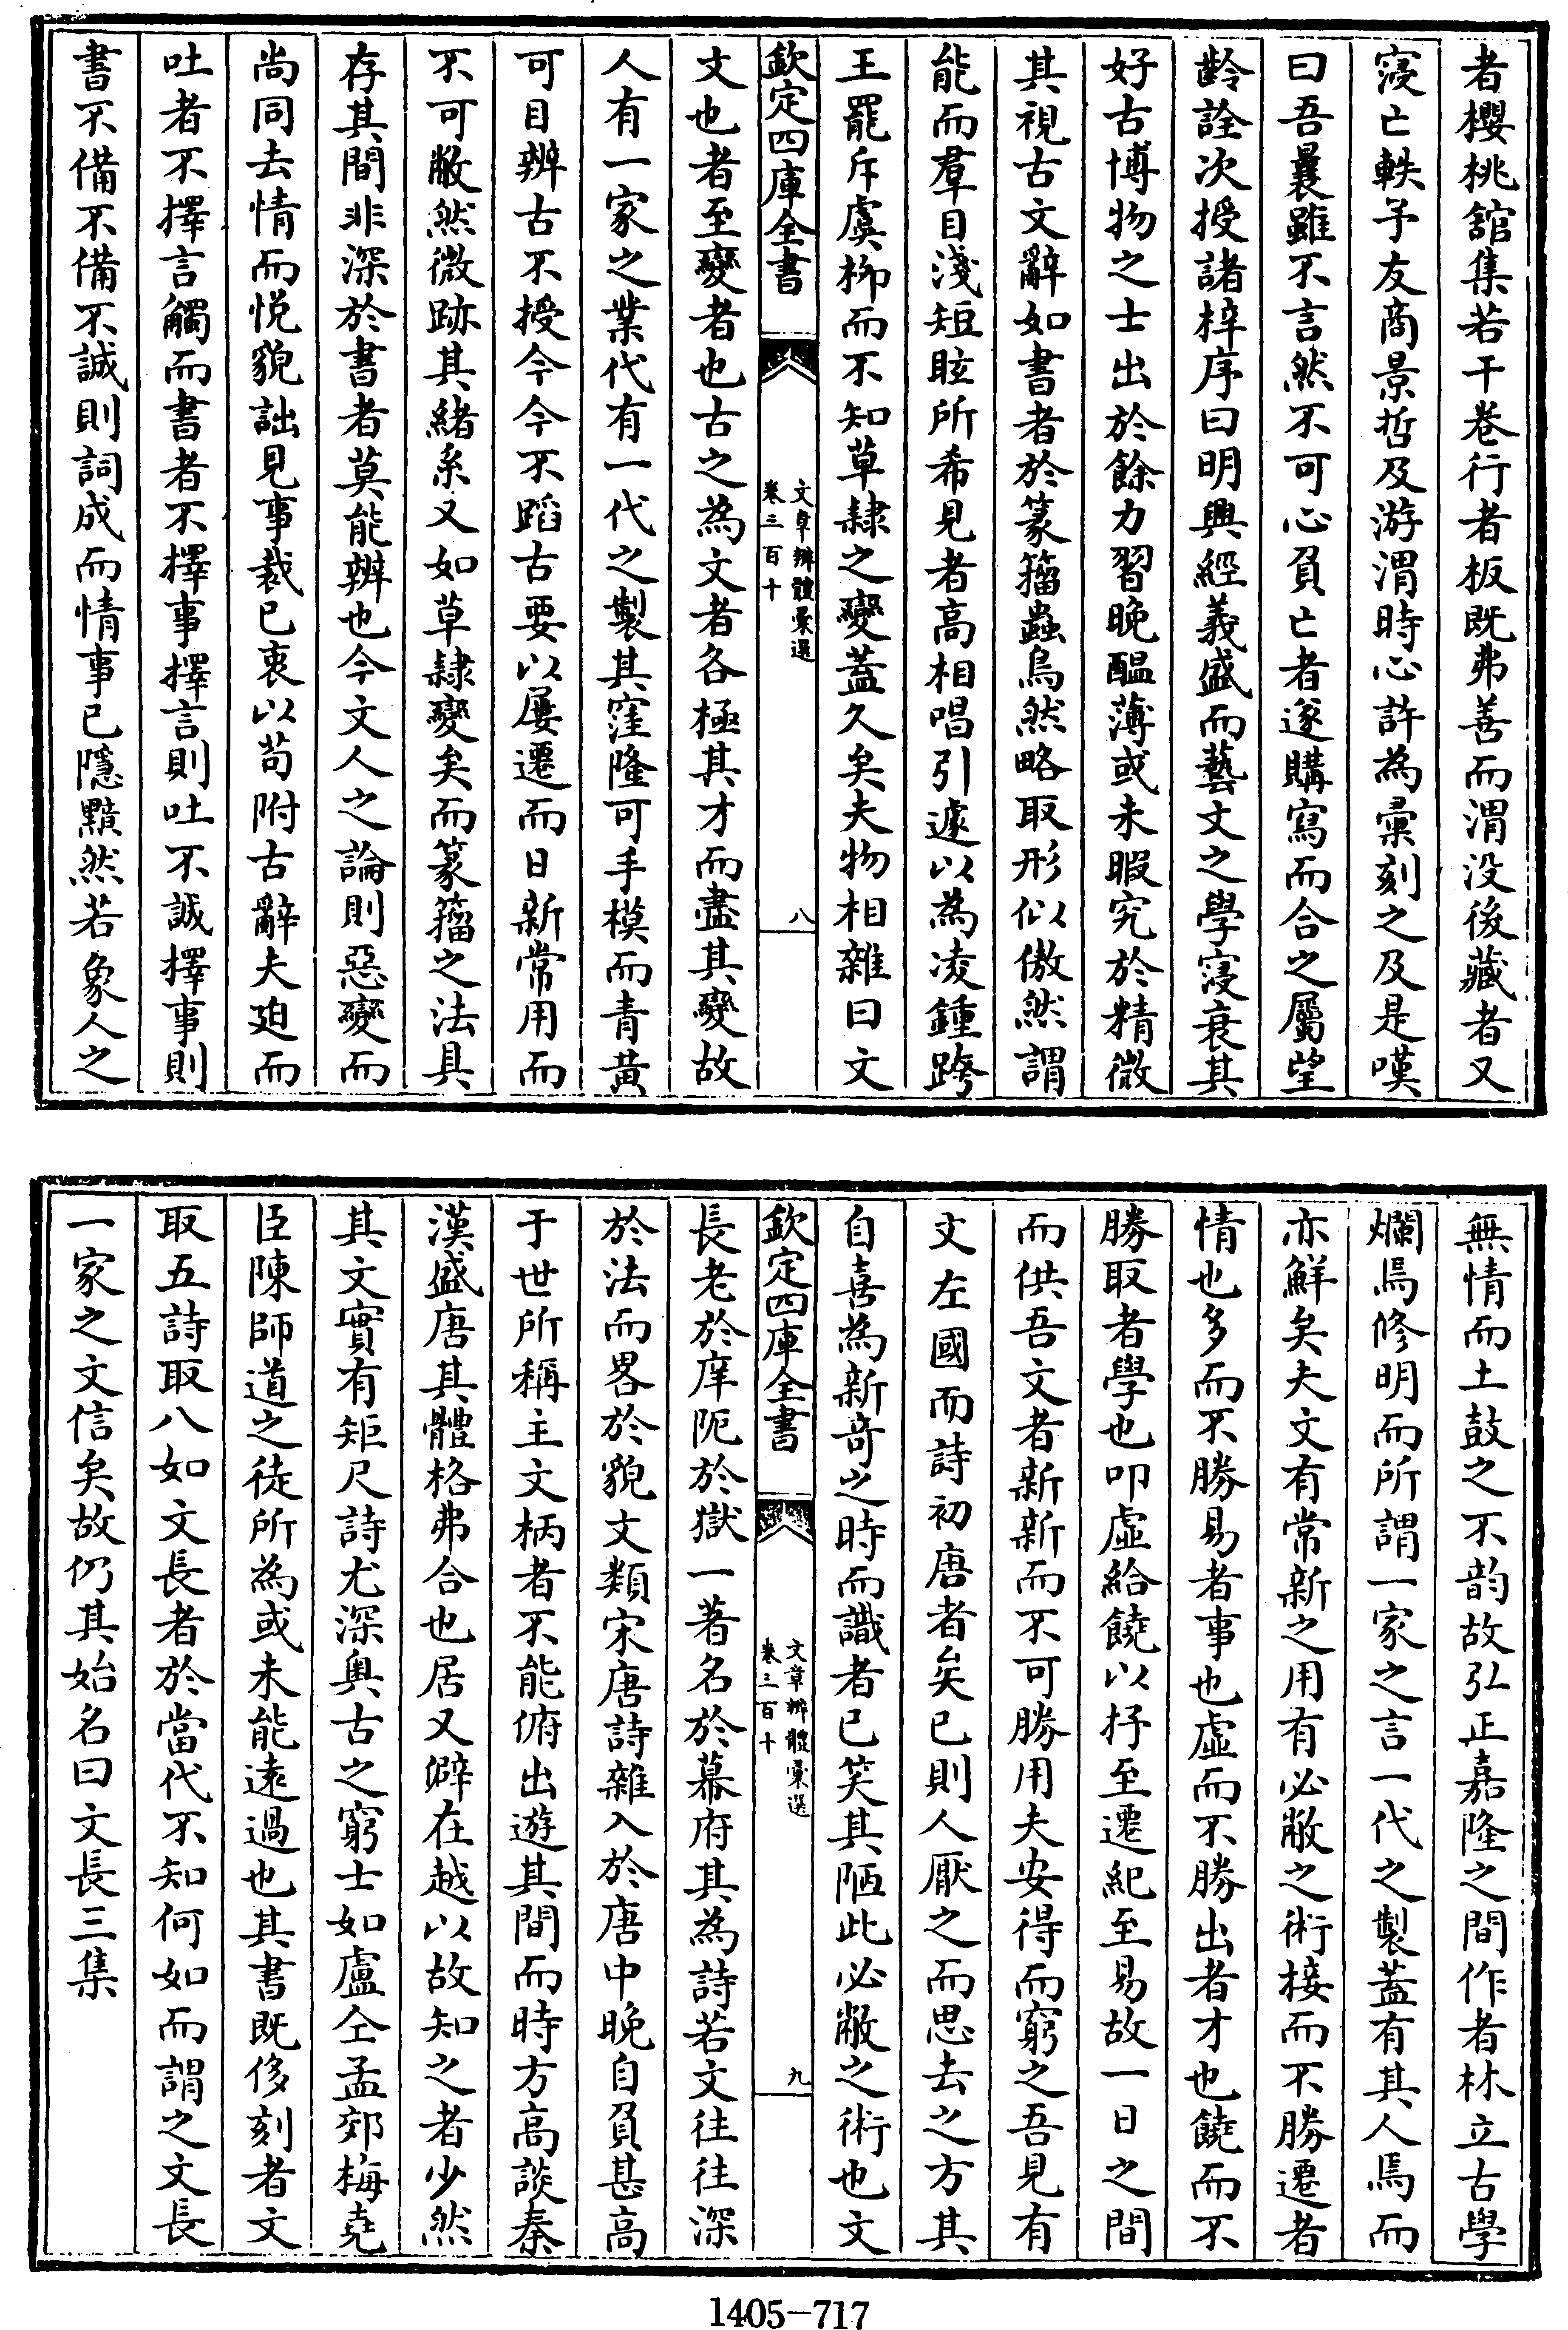 者櫻桃舘集若干卷行者板既弗善而渭没後藏者又
寖亡軼予友商景哲及游渭時心許為彙刻之及是嘆
曰吾曩雖不言然不可心負亡者遂購寫而合之屬望
齡詮次授諸梓序曰明興經義盛而藝文之學寖衰其
好古博物之士出於餘力習晩醖薄或未暇究於精微
其視古文辭如書者於篆籀蟲鳥然略取形似傲然謂
能而羣目淺短眩所希見者高相唱引遽以為凌鍾跨
王罷斥虞柳而不知草隸之變蓋久矣夫物相雜曰文
欽定四庫全書
文章辨體彙選
卷三百十
八
文也者至變者也古之為文者各極其才而盡其變故
人有一家之業代有一代之製其窪隆可手模而青黃
可目辨古不授今今不蹈古要以屢遷而日新常用而
不可敝然微跡其緒系又如草隸變矣而篆籀之法具
存其間非深於書者莫能辨也今文人之論則惡變而
尚同去情而悦貌詘見事裁已衷以苟附古辭夫廹而
吐者不擇言觸而書者不擇事擇言則吐不誠擇事則
書不備不備不誠則詞成而情事已隱黯然若象人之
無情而土鼓之不韵故弘正嘉隆之間作者林立古學
爛焉修明而所謂一家之言一代之製蓋有其人焉而
亦鮮矣夫文有常新之用有必敝之術接而不勝遷者
情也多而不勝易者事也虛而不勝出者才也饒而不
勝取者學也叩虛給饒以抒至遷紀至易故一日之間
而供吾文者新新而不可勝用夫安得而窮之吾見有
文左國而詩初唐者矣已則人厭之而思去之方其
自喜為新竒之時而識者已笑其陋此必敝之術也文
欽定四庫全書
文章辨體彙選
卷三百十
九
長老於庠阨於獄一著名於幕府其為詩若文往往深
於法而畧於貌文類宋唐詩雜入於唐中晚自負甚高
于世所稱主文柄者不能俯出遊其間而時方高談秦
漢盛唐其體格弗合也居又僻在越以故知之者少然
其文實有矩尺詩尤深奥古之窮士如盧仝孟郊梅堯
臣陳師道之徒所為或未能逺過也其書既侈刻者文
取五詩取八如文長者於當代不知何如而謂之文長
一家之文信矣故仍其始名曰文長三集
1405-717